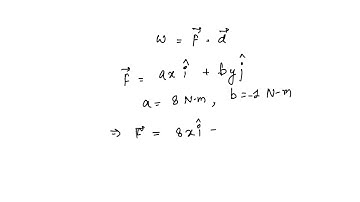 w = \vec{f} . \vec{d}
\vec{f} = ax \hat{i} + by \hat{j}
a = 8 N-m , b = -2 N-m
⇒ \vec{F} = 8x \hat{i} -